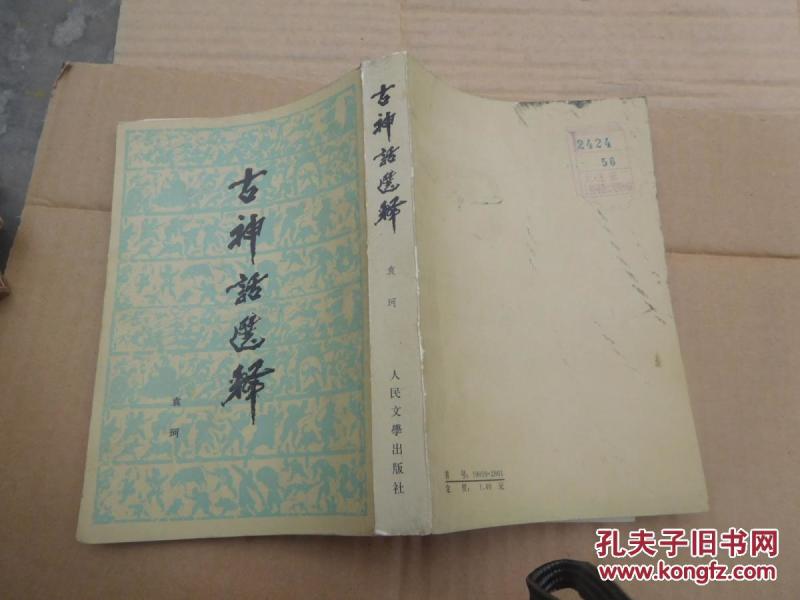 古神話選釋
袁珂
古神話選釋
袁珂
人民文學出版社
2424
56
定價：1.40元
孔夫子旧书网
www.kongfz.com